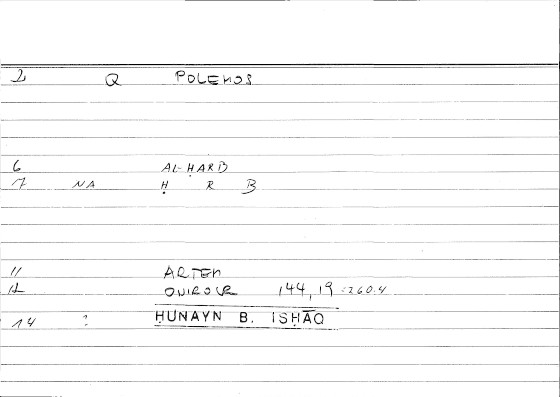 2 Q POLEMOS
6 AL-ḤARB
7 NA Ḥ R B
11 ARTEM
12 ONIROCR 144,19 =260.4
14 ? ḤUNAYN B. ISḤĀQ